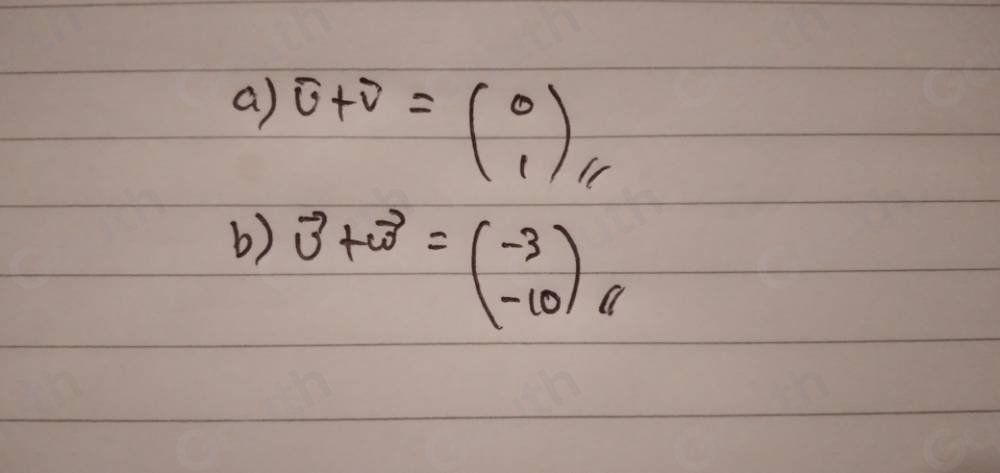 a) v̄ + v̄ = (0
1)//
b) v⃗ + w⃗ = (-3
-10)//